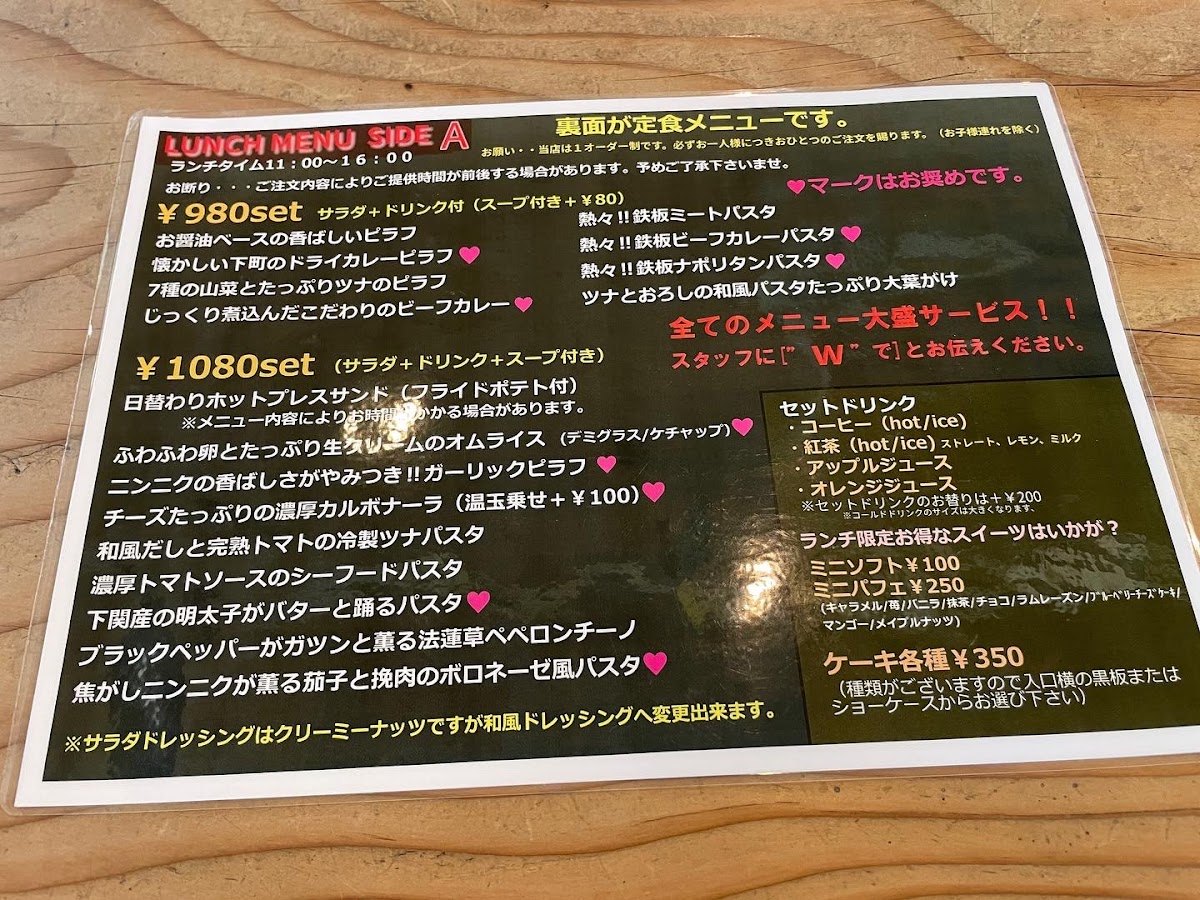 LUNCH MENU SIDE A
裏面が定食メニューです。
ランチタイム11：00〜16：00
お願い・・当店は１オーダー制です。必ずお一人様につきおひとつのご注文を賜ります。（お子様連れを除く）
お断り・・・ご注文内容によりご提供時間が前後する場合があります。予めご了承下さいませ。
♥マークはお奨めです。
￥980set サラダ＋ドリンク付（スープ付き＋￥80）
お醤油ベースの香ばしいピラフ
懐かしい下町のドライカレーピラフ♥
7種の山菜とたっぷりツナのピラフ
じっくり煮込んだこだわりのビーフカレー♥
熱々!!鉄板ミートパスタ
熱々!!鉄板ビーフカレーパスタ♥
熱々!!鉄板ナポリタンパスタ♥
ツナとおろしの和風パスタたっぷり大葉がけ
全てのメニュー大盛サービス！！
スタッフに[”W”で]とお伝えください。
￥1080set （サラダ＋ドリンク＋スープ付き）
日替わりホットプレスサンド（フライドポテト付）
※メニュー内容によりお時間がかかる場合があります。
ふわふわ卵とたっぷり生クリームのオムライス（デミグラス/ケチャップ）♥
ニンニクの香ばしさがやみつき!!ガーリックピラフ♥
チーズたっぷりの濃厚カルボナーラ（温玉乗せ＋￥100）♥
和風だしと完熟トマトの冷製ツナパスタ
濃厚トマトソースのシーフードパスタ
下関産の明太子がバターと踊るパスタ♥
ブラックペッパーがガツンと薫る法蓮草ペペロンチーノ
焦がしニンニクが薫る茄子と挽肉のボロネーゼ風パスタ♥
※サラダドレッシングはクリーミーナッツですが和風ドレッシングへ変更出来ます。
セットドリンク
・コーヒー（hot/ice）
・紅茶（hot/ice）ストレート、レモン、ミルク
・アップルジュース
・オレンジジュース
※セットドリンクのお替りは＋￥200
※コールドドリンクのサイズは大きくなります、
ランチ限定お得なスイーツはいかが？
ミニソフト￥100
ミニパフェ￥250
（キャラメル/苺/バニラ/抹茶/チョコ/ラムレーズン/ﾌﾞﾙｰﾍﾞﾘｰﾁｰｽﾞｹｰｷ/
マンゴー/メイプルナッツ）
ケーキ各種￥350
（種類がございますので入口横の黒板または
ショーケースからお選び下さい）